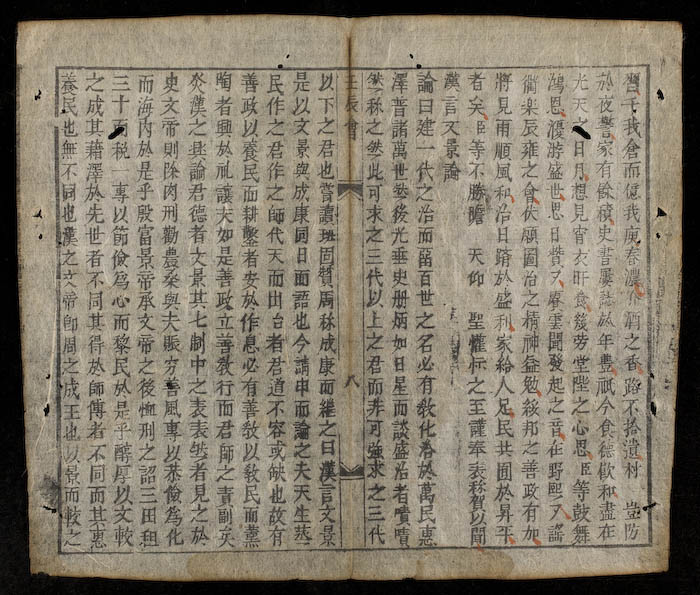 千我倉而億我庾春濃介酒之香路不拾遺材 豈防
於夜警家有餘積史書屢誌於年豊祇今食德飲和盡在
光天之日月想見宵衣旰食劳堂陛之心思臣等鼓舞
鴻恩優游盛世思日賛又雲閣發起之音在野熙又謡
衢樂辰雍之會伏願圖治之精神益勉綏邦之善政有加
將見雨順風和治日躋於盛利家給人足民共囿於昇平
者矣臣等不勝瞻 天仰 聖懽忭之至謹奉表秼賀以聞
漢言文景論
論曰建一代之治而畱百世之名必有敎化洽於萬民惠
澤普諸萬世然後光垂史册炳如日星而談盛治者嘖嘖
然秼之然此可求之三代以上之君而非可強求之三代
壬辰會 八
以下之君也嘗讀班固賛周秼成康而継之曰漢言文景
是以文景與成康同日而語也今請申而論之夫天生蒸
民作之君作之師代天而出台者君道不容或缺也故有
善政以養民而耕鑿者安於作息必有善敎以敎民而薫
陶者興於礼讓夫如是善政立善敎行而君師之責副矣
炎漢之興論君德者文景其七制中之表表然者見之於
史文帝則除肉刑勸農桑與夫賑穷善風專以恭儉為化
而海内於是乎殷富景帝承文帝之後恤刑之詔三田租
三十而税一專以節儉為心而黎民於是乎醇厚以文較
之成其藉澤於先世者不同其得於師傅者不同而其惠
養民也無不同也漢之文帝即周之成王也以景而較之